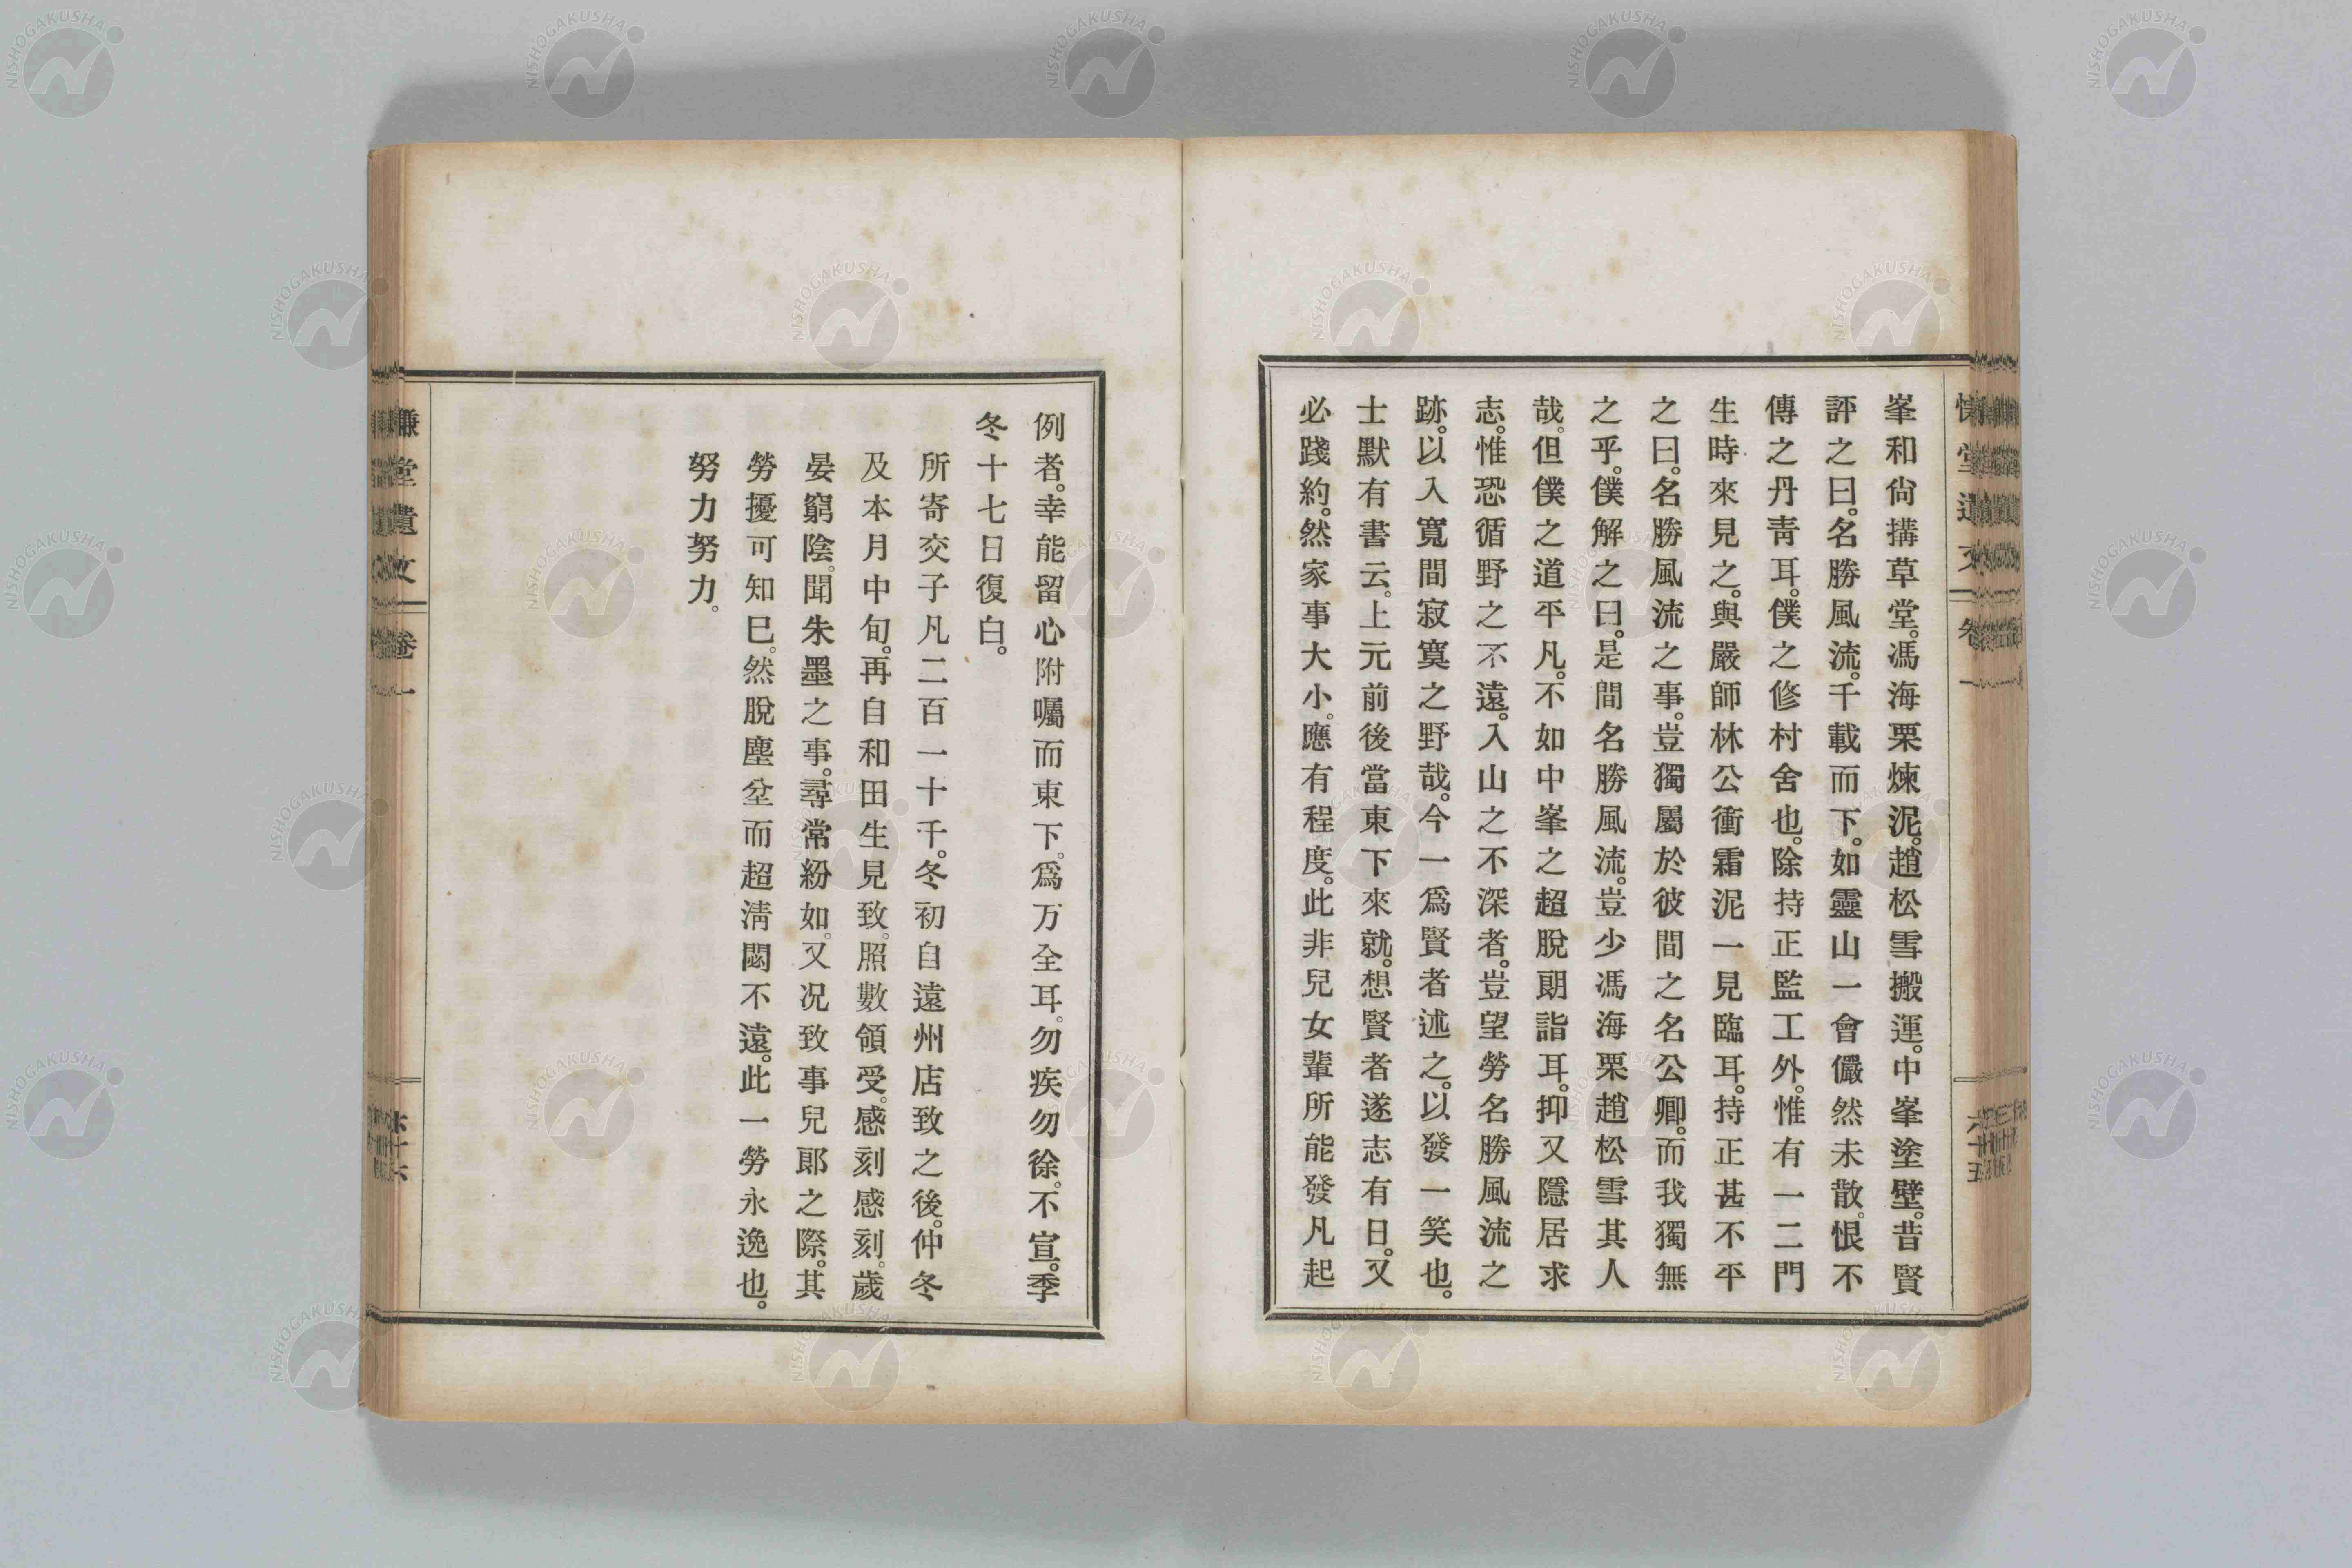 峯和尙搆草堂。馮海栗煉泥。趙松雪搬運。中峯塗壁。昔賢
評之曰。名勝風流。千載而下。如靈山一會儼然未散。恨不
傳之丹靑耳。僕之修村舍也。除持正監工外。惟有一二門
生時來見之。與嚴師林公衝霜泥一見臨耳。持正甚不平
之曰。名勝風流之事。豈獨屬於彼間之名公卿。而我獨無
之乎。僕解之曰。是間名勝風流。豈少馮海栗趙松雪其人
哉。但僕之道平凡。不如中峯之超脫朗詣耳。抑又隱居求
志。惟恐循野之不遠。入山之不深者。豈望勞名勝風流之
跡。以入寬間寂寞之野哉。今一爲賢者述之。以發一笑也。
士默有書云。上元前後當東下來就。想賢者遂志有日。又
必踐約。然家事大小。應有程度。此非兒女輩所能發凡起
例者。幸能留心附囑而東下。爲万全耳。勿疾勿徐。不宣。季
冬十七日復白。
所寄交子凡二百一十千。冬初自遠州店致之後。仲冬
及本月中旬。再自和田生見致。照數領受。感刻感刻。歲
晏窮陰。聞朱墨之事。尋常紛如。又况致事兒郞之際。其
勞擾可知巳。然脫塵坌而超淸閟不遠。此一勞永逸也。
努力努力。
慊堂遺文 卷一 六十六
NISHOGAKUSHA